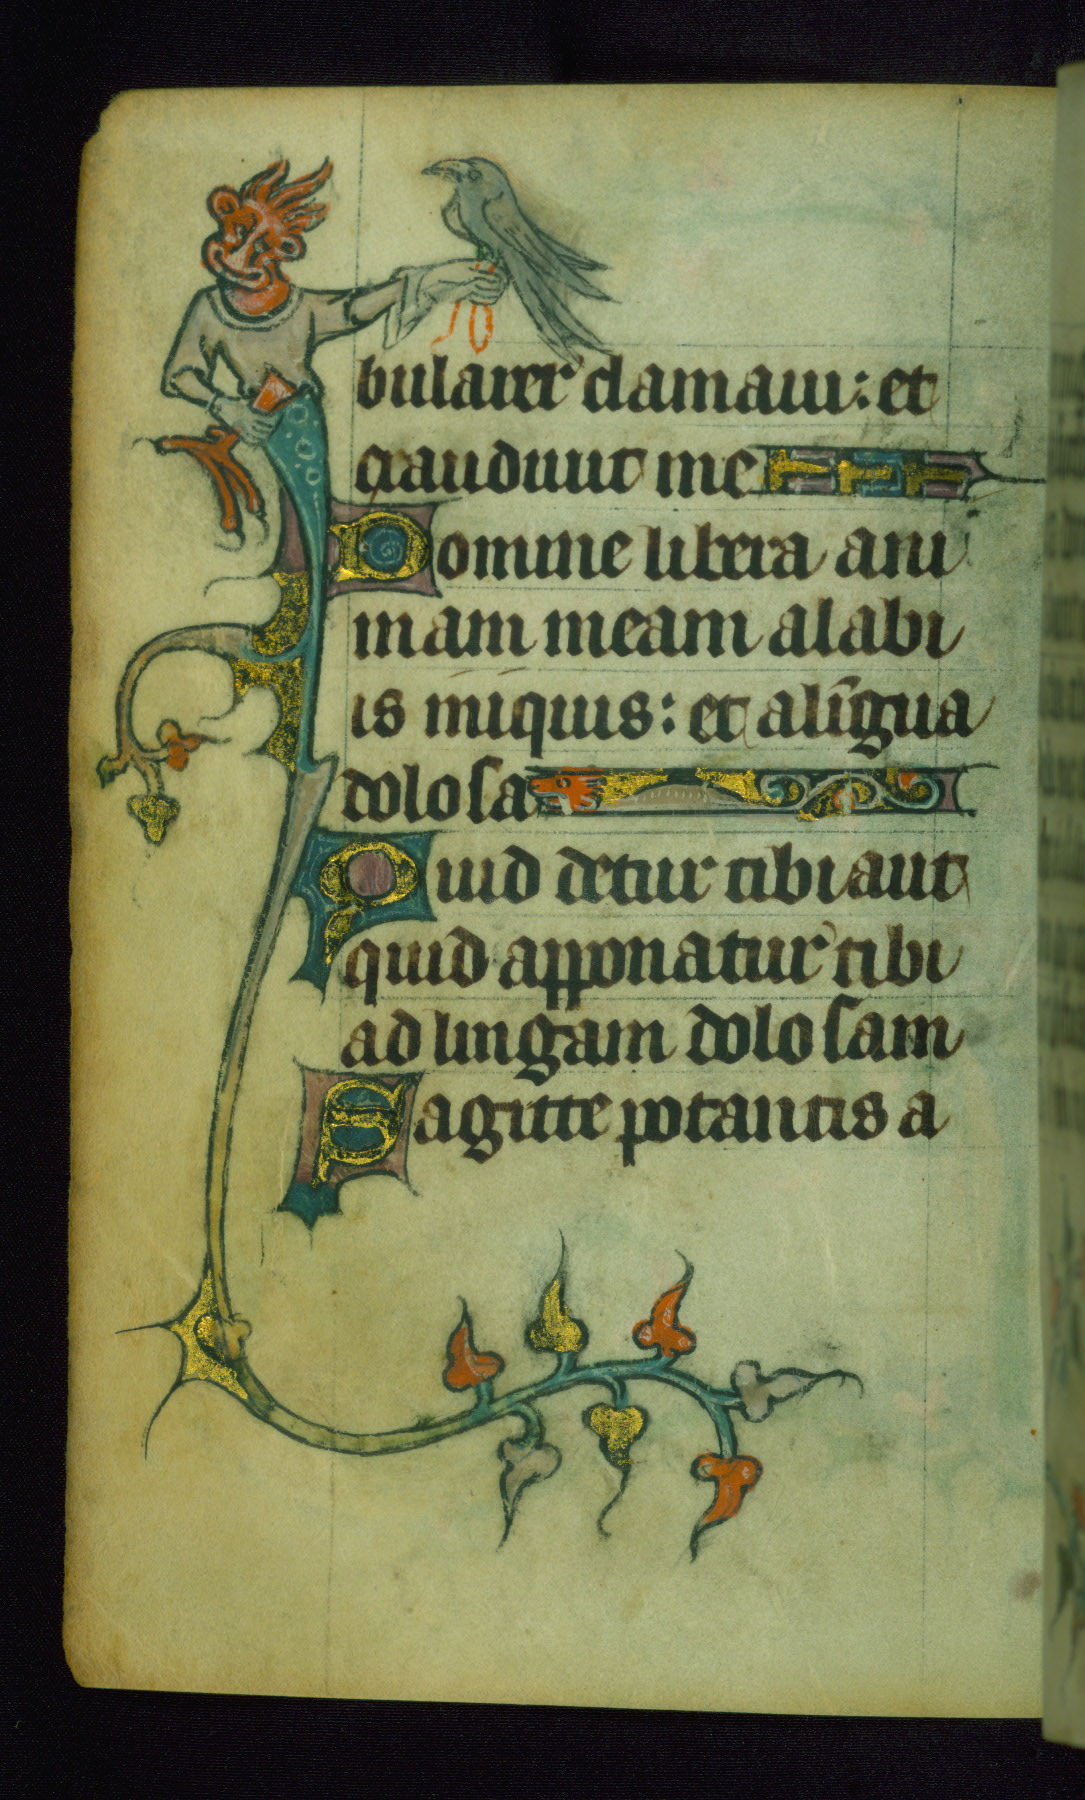 bularer clamaui: et
exaudiuit me
Domine libera ani
mam meam a labi
is iniquis: et a lingua
dolosa
Quid detur tibi aut
quid apponatur tibi
ad lingam dolosam
Sagitte potantis a